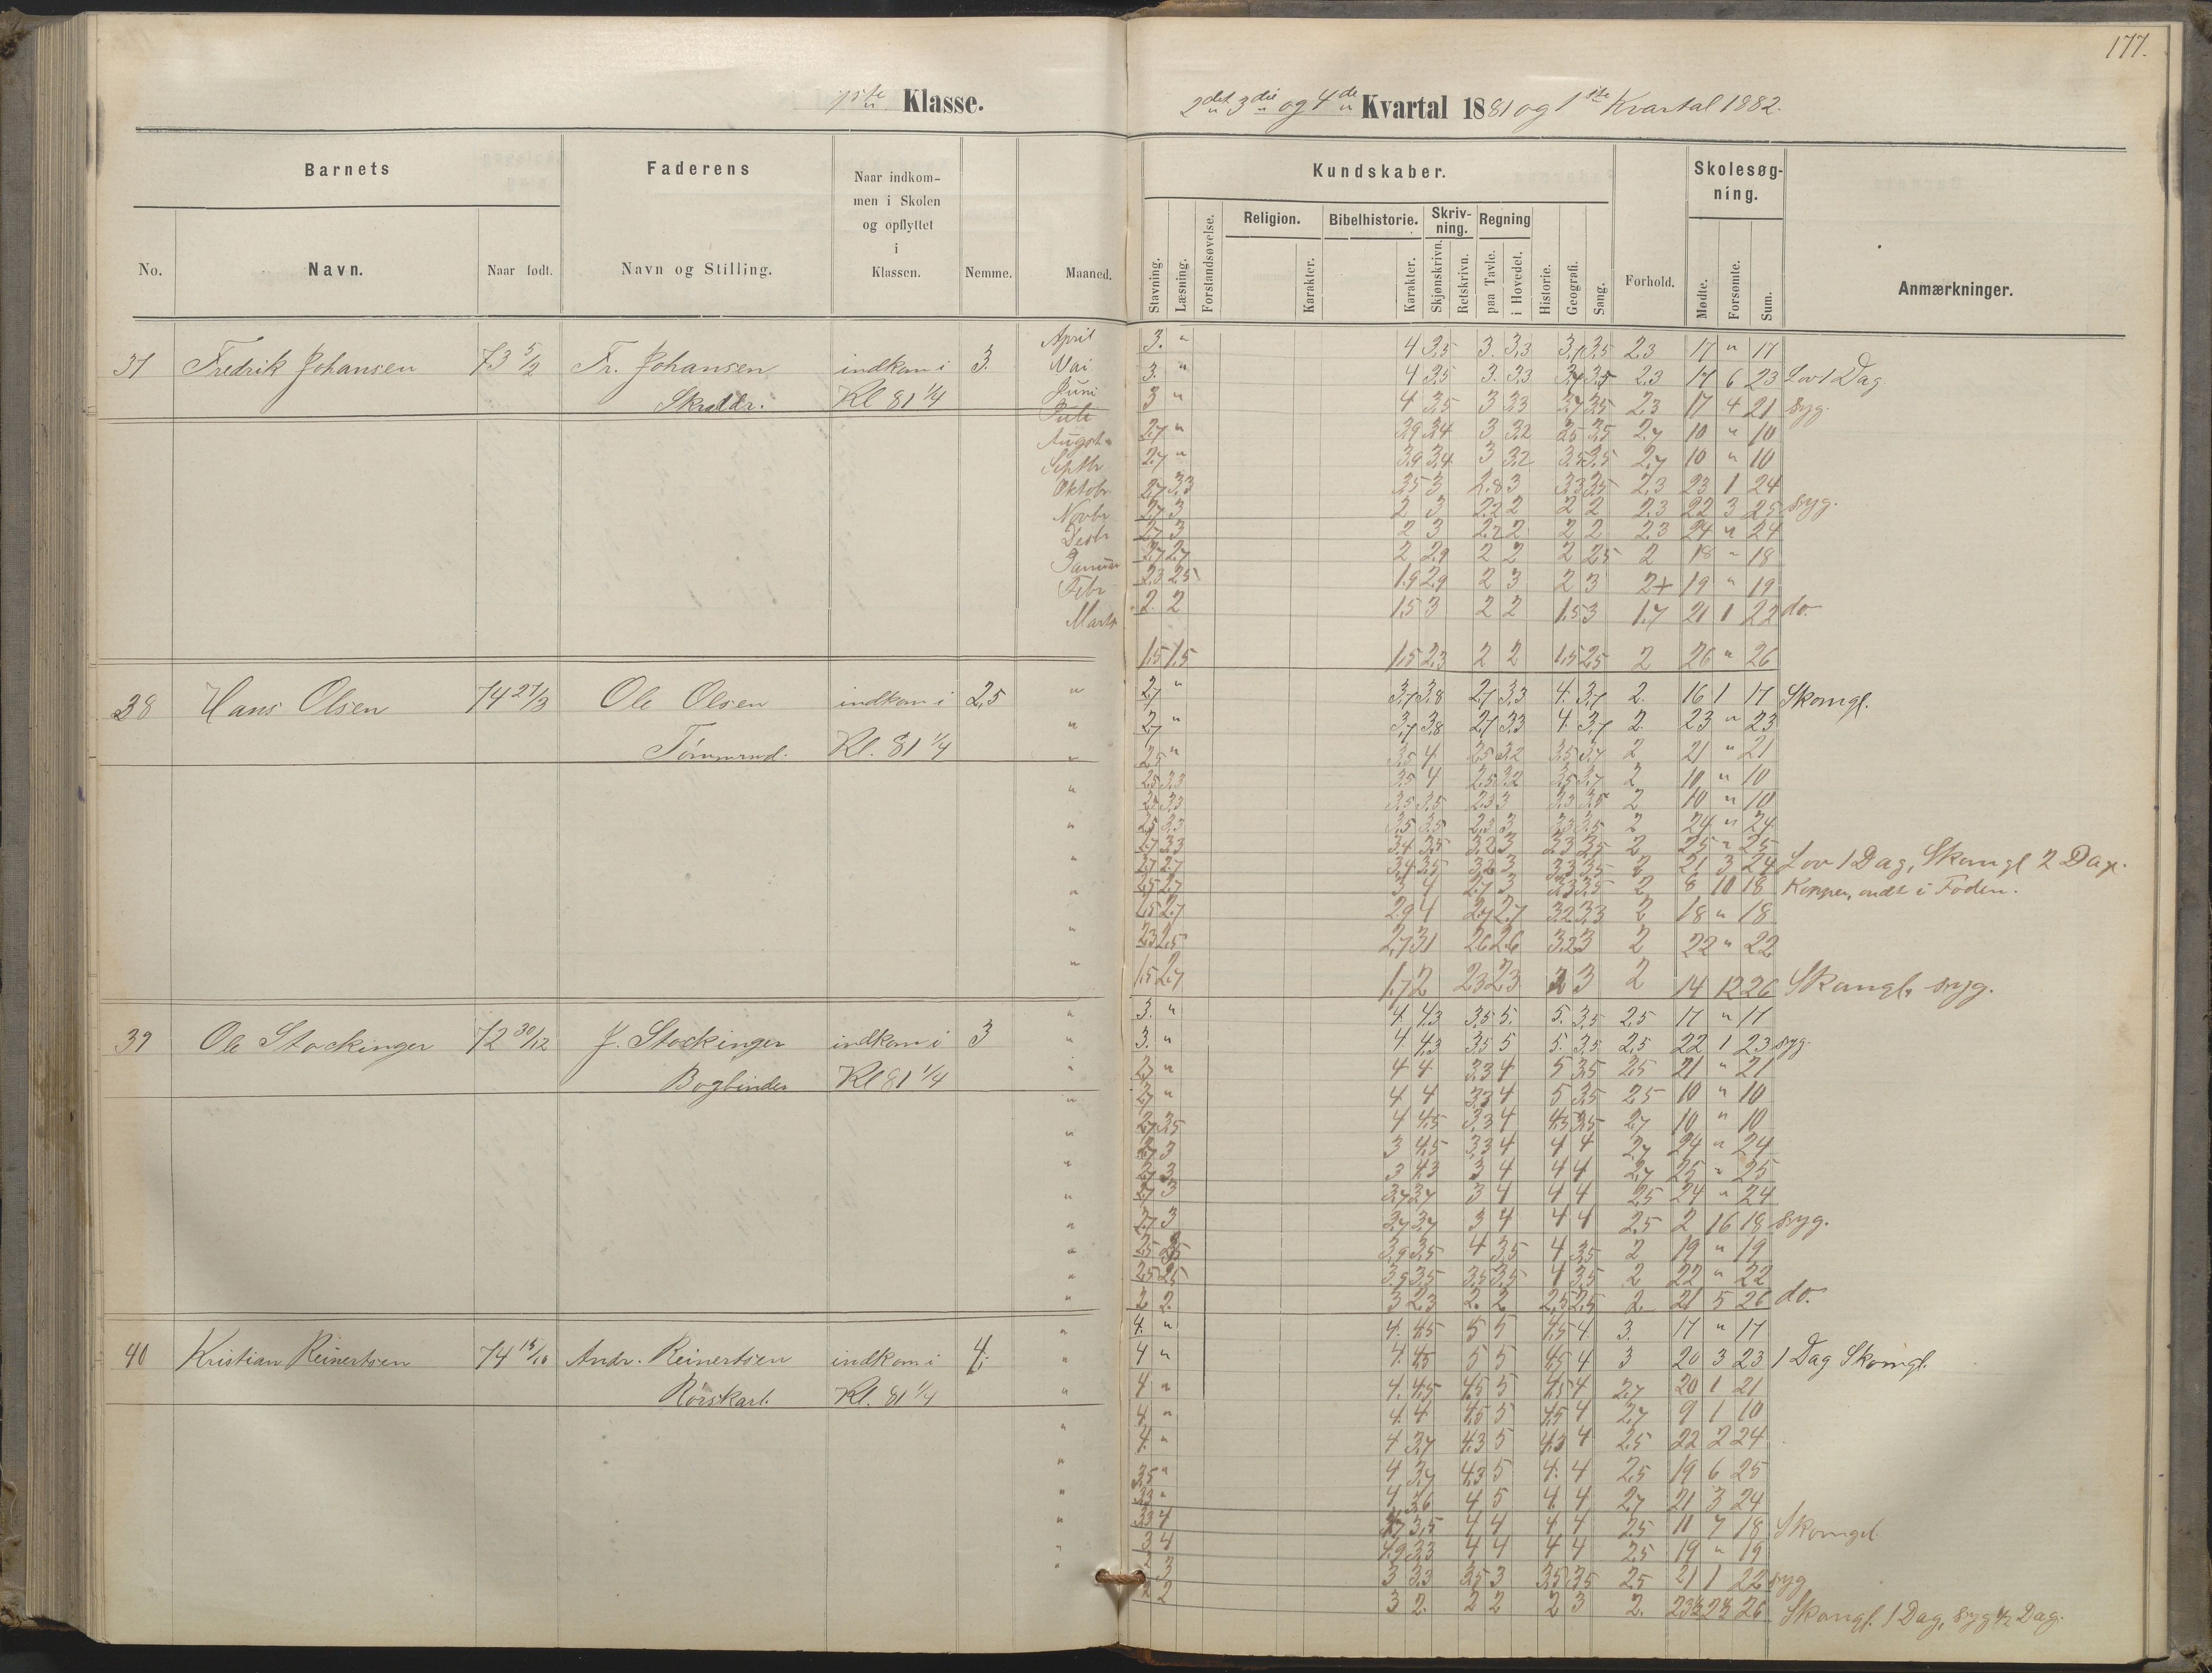 177.
1ste Klasse.
2det 3die og 4de Kvartal 1881 og 1ste Kvartal 1882.
Barnets
Faderens
Naar indkom-
men i Skolen
og opflyttet
i
Klassen.
No.
Navn.
Naar født.
Navn og Stilling.
Nemme.
Maaned.
Kundskaber.
Skolesøg-
ning.
Stavning.
Læsning.
Forstandsøvelse.
Religion.
Karakter.
Bibelhistorie.
Karakter.
Skriv-
ning.
Skjønskrivn.
Retskrivn.
Regning
paa Tavle.
i Hovedet.
Historie.
Geografi.
Sang.
Forhold.
Mødte.
Forsømte.
Sum.
Anmærkninger.
37 Fredrik Johansen 73 5/2 Fr. Johansen indkom i 3.
Skrædr. Kl 81 1/4
April
Mai
Juni
Juli
Augst
Septbr
Oktobr
Novbr
Desbr
Januar
Febr
Marts
3. " 4 3,5 3. 3,3 3,7 3,5 2,3 17 " 17
3. " 4 3,5 3. 3,3 3,7 3,5 2,3 17 6 23 Lov 1 Dag
3 " 4 3,5 3 3,3 3,7 3,5 2,3 17 4 21 syg.
2,7 " 3,9 3,4 3 3,2 3,5 3,5 2,7 10 " 10
2,7 " 3,9 3,4 3 3,2 3,5 3,5 2,7 10 " 10
2,7 3,3 3,5 3 2,8 3 3,3 3,5 2,3 23 1 24
2,7 3 2 3 2,2 2 2 2 2,3 22 3 25 syg.
2,7 3 2 3 2,2 2 2 2 2,3 24 " 24
2,7 2,7 2 2,9 2 2 2 2,5 2 18 " 18
2,3 2,5 1,9 2,9 2 3 2 3 2+ 19 " 19
2. 2 1,5 3 2 2 1,5 3 1,7 21 1 22 do.
1,5 1,5 1,5 2,3 2 2 1,5 2,5 2 26 " 26
38 Hans Olsen 74 27/3 Ole Olsen indkom i 2,5
Tømmrmd. Kl. 81 1/4
2,7 " 3,7 3,8 2,7 3,3 4. 3,7 2. 16 1 17 Skomgl.
2,7 " 3,7 3,8 2,7 3,3 4. 3,7 2. 23 " 23
2,5 " 3,5 4 2,5 3,2 3,5 3,7 2 21 " 21
2,5 3,3 3,5 4 2,5 3,2 3,5 3,7 2 10 " 10
2,5 3,3 3,5 3,5 2,3 3 3,3 3,5 2 10 " 10
2,5 3,3 3,5 3,5 2,3 3 3,3 3,5 2 24 " 24
2,7 3,3 3,4 3,5 3,2 3 3,3 3,5 2 25 " 25
2,7 2,7 3,4 3,5 3,2 3 3,3 3,5 2 21 3 24 Lov 1 Dag, Skomgl 2 Dage.
2,5 2,7 3 4 2,7 3 3,3 3,5 2 8 10 18 Kopper, ondt i Foden.
2,5 2,7 2,9 4 2,7 2,7 3,2 3,3 2 18 " 18
2,3 2,5 2,7 3,1 2,6 2,6 3,2 3 2 22 " 22
1,5 2,7 1,7 2 2,3 2,3 2 3 2 14 12 26 Skomgl. syg.
39 Ole Stockinger 72 30/12 J. Stockinger indkom i 3
Bogbinder Kl 81 1/4
3. " 4. 4,3 3,5 5. 5. 3,5 2,5 17 " 17
3. " 4. 4,3 3,5 5 5. 3,5 2,5 22 1 23 syg.
2,7 " 4 4 3,3 4 5 3,5 2,5 21 " 21
2,7 " 4 4 3,3 4 5 3,5 2,5 10 " 10
2,7 3,5 4 4,5 3,3 4 4,3 3,5 2,7 10 " 10
2,7 3 3 4,5 3,3 4 4 4 2,7 24 " 24
2,7 3 3 4,3 3 4 4 4 2,7 25 " 25
2,7 3 3,7 3,7 3 4 4 4 2,5 24 " 24
2,7 3 3,7 3,7 3 4 4 4 2,5 2 16 18 syg.
2,5 2,5 3,9 3,5 4 3,5 4 3,5 2 19 " 19
2,5 2,5 3,9 3,5 3,5 3,5 4 3,5 2 22 " 22
2 2. 3 2,3 2. 2 2,5 2,5 2. 21 5 26 do.
40 Kristian Reinertsen 74 15/10 Andr. Reinertsen indkom i 4.
Rorskarl. Kl. 81 1/4
4. " 4. 4,5 5 5 4,5 4. 3. 17 " 17
4 " 4. 4,5 5 5 4,5 4 3 20 3 23 1 Dag Skomgl.
4 " 4. 4,5 4,5 5 4,5 4 2,7 20 1 21
4. " 4. 4 4,5 5 4,5 4 2,7 9 1 10
4. " 4 3,7 4,3 5 4,3 4 2,5 22 2 24
3,5 " 4 3,7 4,3 5 4. 4 2,5 19 6 25
3,3 " 4 3,6 4 5 4. 4 2,7 21 3 24
3,3 4 3,5 4 4 4 4 2,5 11 7 18 Skomgl.
3 4 3,3 4 4 4 4 2,5 19 " 19
2 3 3 3,3 3,5 3 3,5 3,5 2,5 21 1 22 syg
2 2 3 2. 2 2 2 3 2. 23½ 2½ 26 Skomgl. 1 Dag, syg 1½ Dag.